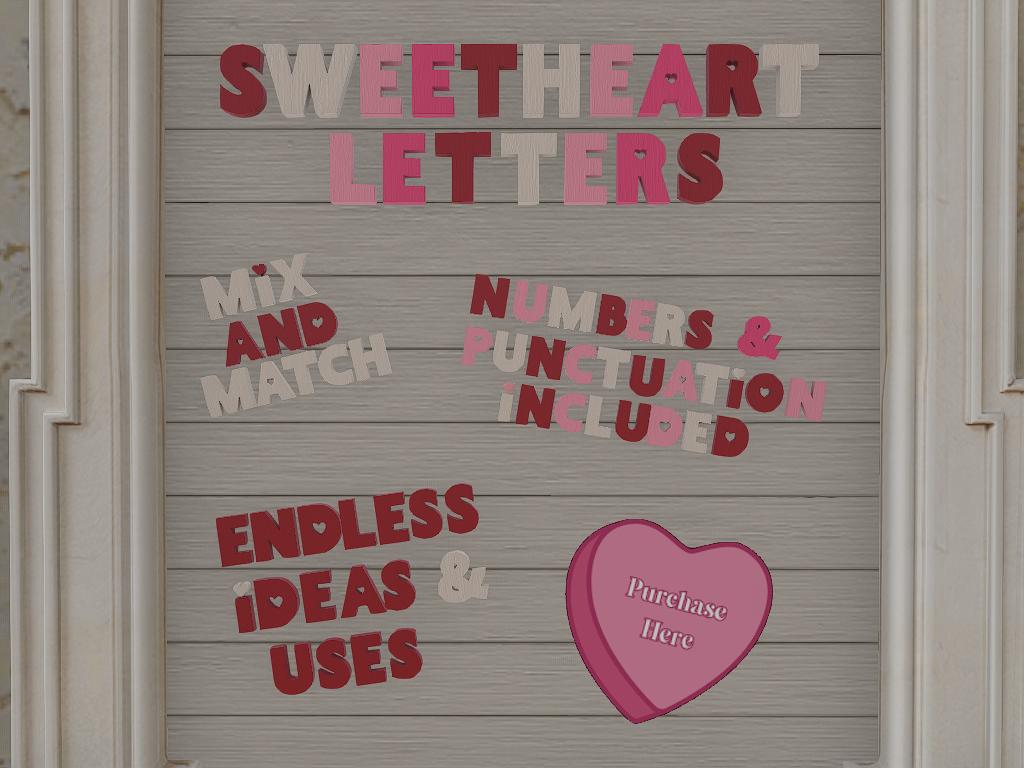 SWEETHEART
LETTERS
MiX
AND
MATCH
NUMBERS &
PUNCTUATiON
iNCLUDED
ENDLESS
iDEAS &
USES
Purchase
Here